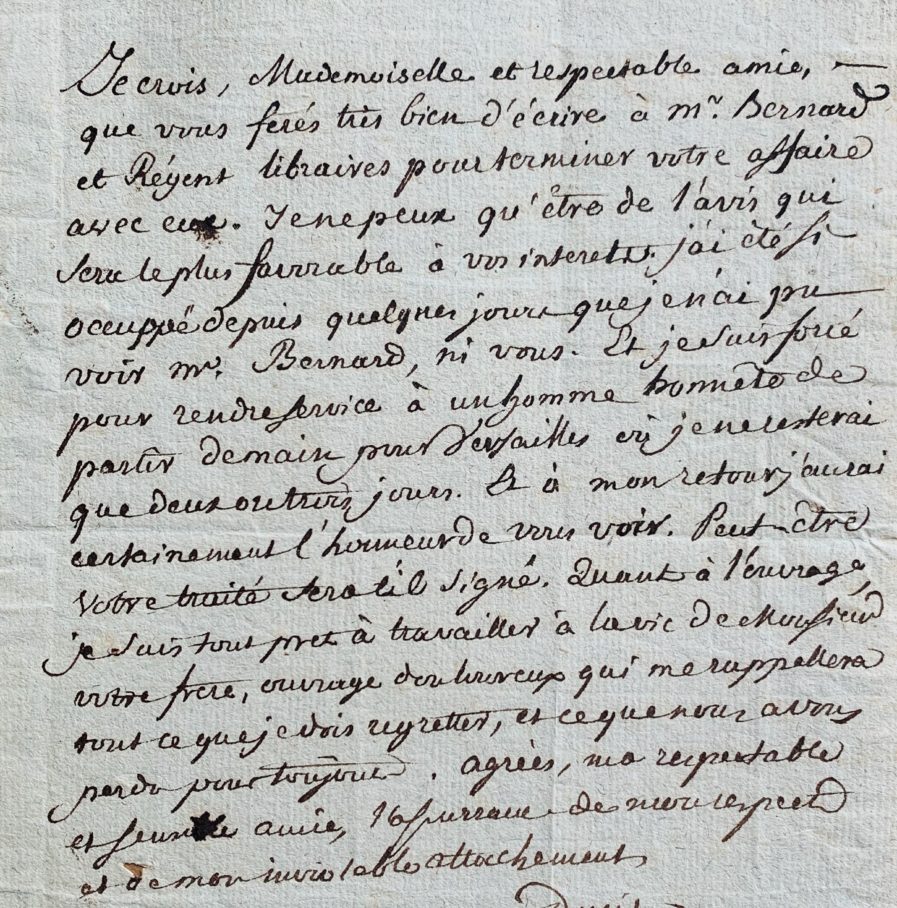 Je crois, Mademoiselle et respectable amie,
que vous ferés très bien d'écrire à mr. Bernard
et Régent libraires pour terminer votre affaire
avec eux. Je ne peux qu'être de l'avis qui
sera le plus favorable à vos interets. j'ai été si
occuppé depuis quelques jours que je n'ai pu
voir mr. Bernard, ni vous. Et je suis forcé
pour rendre service à un homme honnête de
partir demain pour Versailles où je ne resterai
que deux ou trois jours. Et à mon retour j'aurai
certainement l'honneur de vous voir. Peut-être
votre traité sera t'il signé. Quant à l'ouvrage,
je suis tout pret à travailler à la vie de Monsieur
votre frère, ouvrage douloureux qui me rappellera
tout ce que je dois regretter, et ce que nous avons
perdu pour toujours. agrées, ma respectable
et amie, l'assurance de mon respect
et de mon inviolable attachement
Ducis